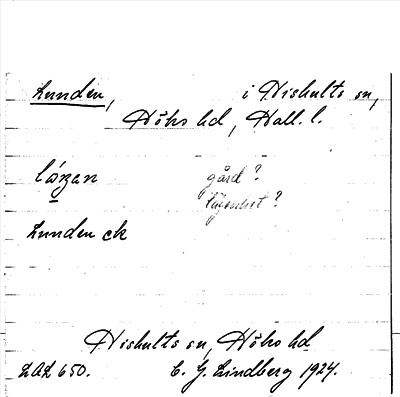 Lunden, i Hishults sn,
Höks hd, Hall. l.
gård?
lägenhet?
Lunden ck
Hishults sn, Höks hd
LAL 650. C. J. Lindberg 1924.